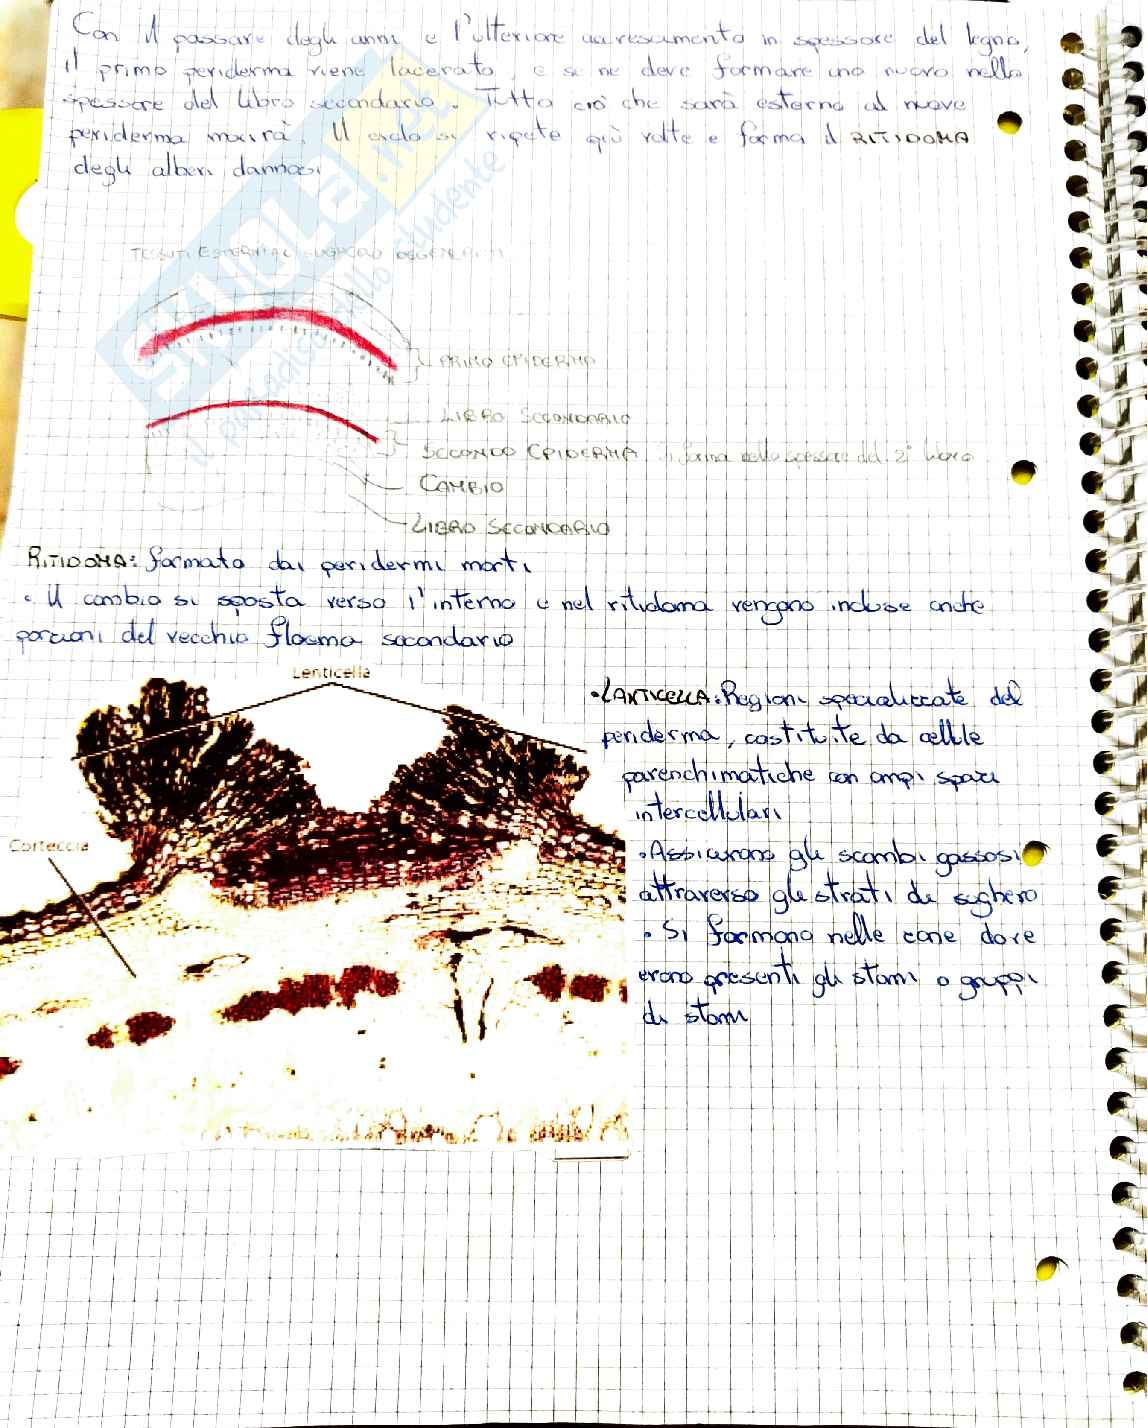 Con il passare degli anni e l'ulteriore accrescimento in spessore del legno,
il primo periderma viene lacerato, e se ne deve formare uno nuovo nello
spessore del libro secondario. Tutto ciò che sarà esterno al nuovo
periderma morirà. Il ciclo si ripete più volte e forma il RITIDOMA
degli alberi dannosi
TESSUTI ESTERNI AL SUGHERO DEGENERATI
PRIMO EPIDERMA
LIBRO SECONDARIO
SECONDO EPIDERMA si forma nello spessore del 2° libro
CAMBIO
LIBRO SECONDARIO
RITIDOMA: formato dai peridermi morti
• Il cambio si sposta verso l'interno e nel ritidoma vengono incluse anche
porzioni del vecchio floema secondario
Lenticella
Corteccia
• LANTICELLA: Regioni specializzate del
periderma, costituite da cellule
parenchimatiche con ampi spazi
intercellulari
• Assicurano gli scambi gassosi
attraverso gli strati di sughero
• Si formano nelle zone dove
erano presenti gli stomi o gruppi
di stomi
SKUOLA.net
il paradiso dello studente